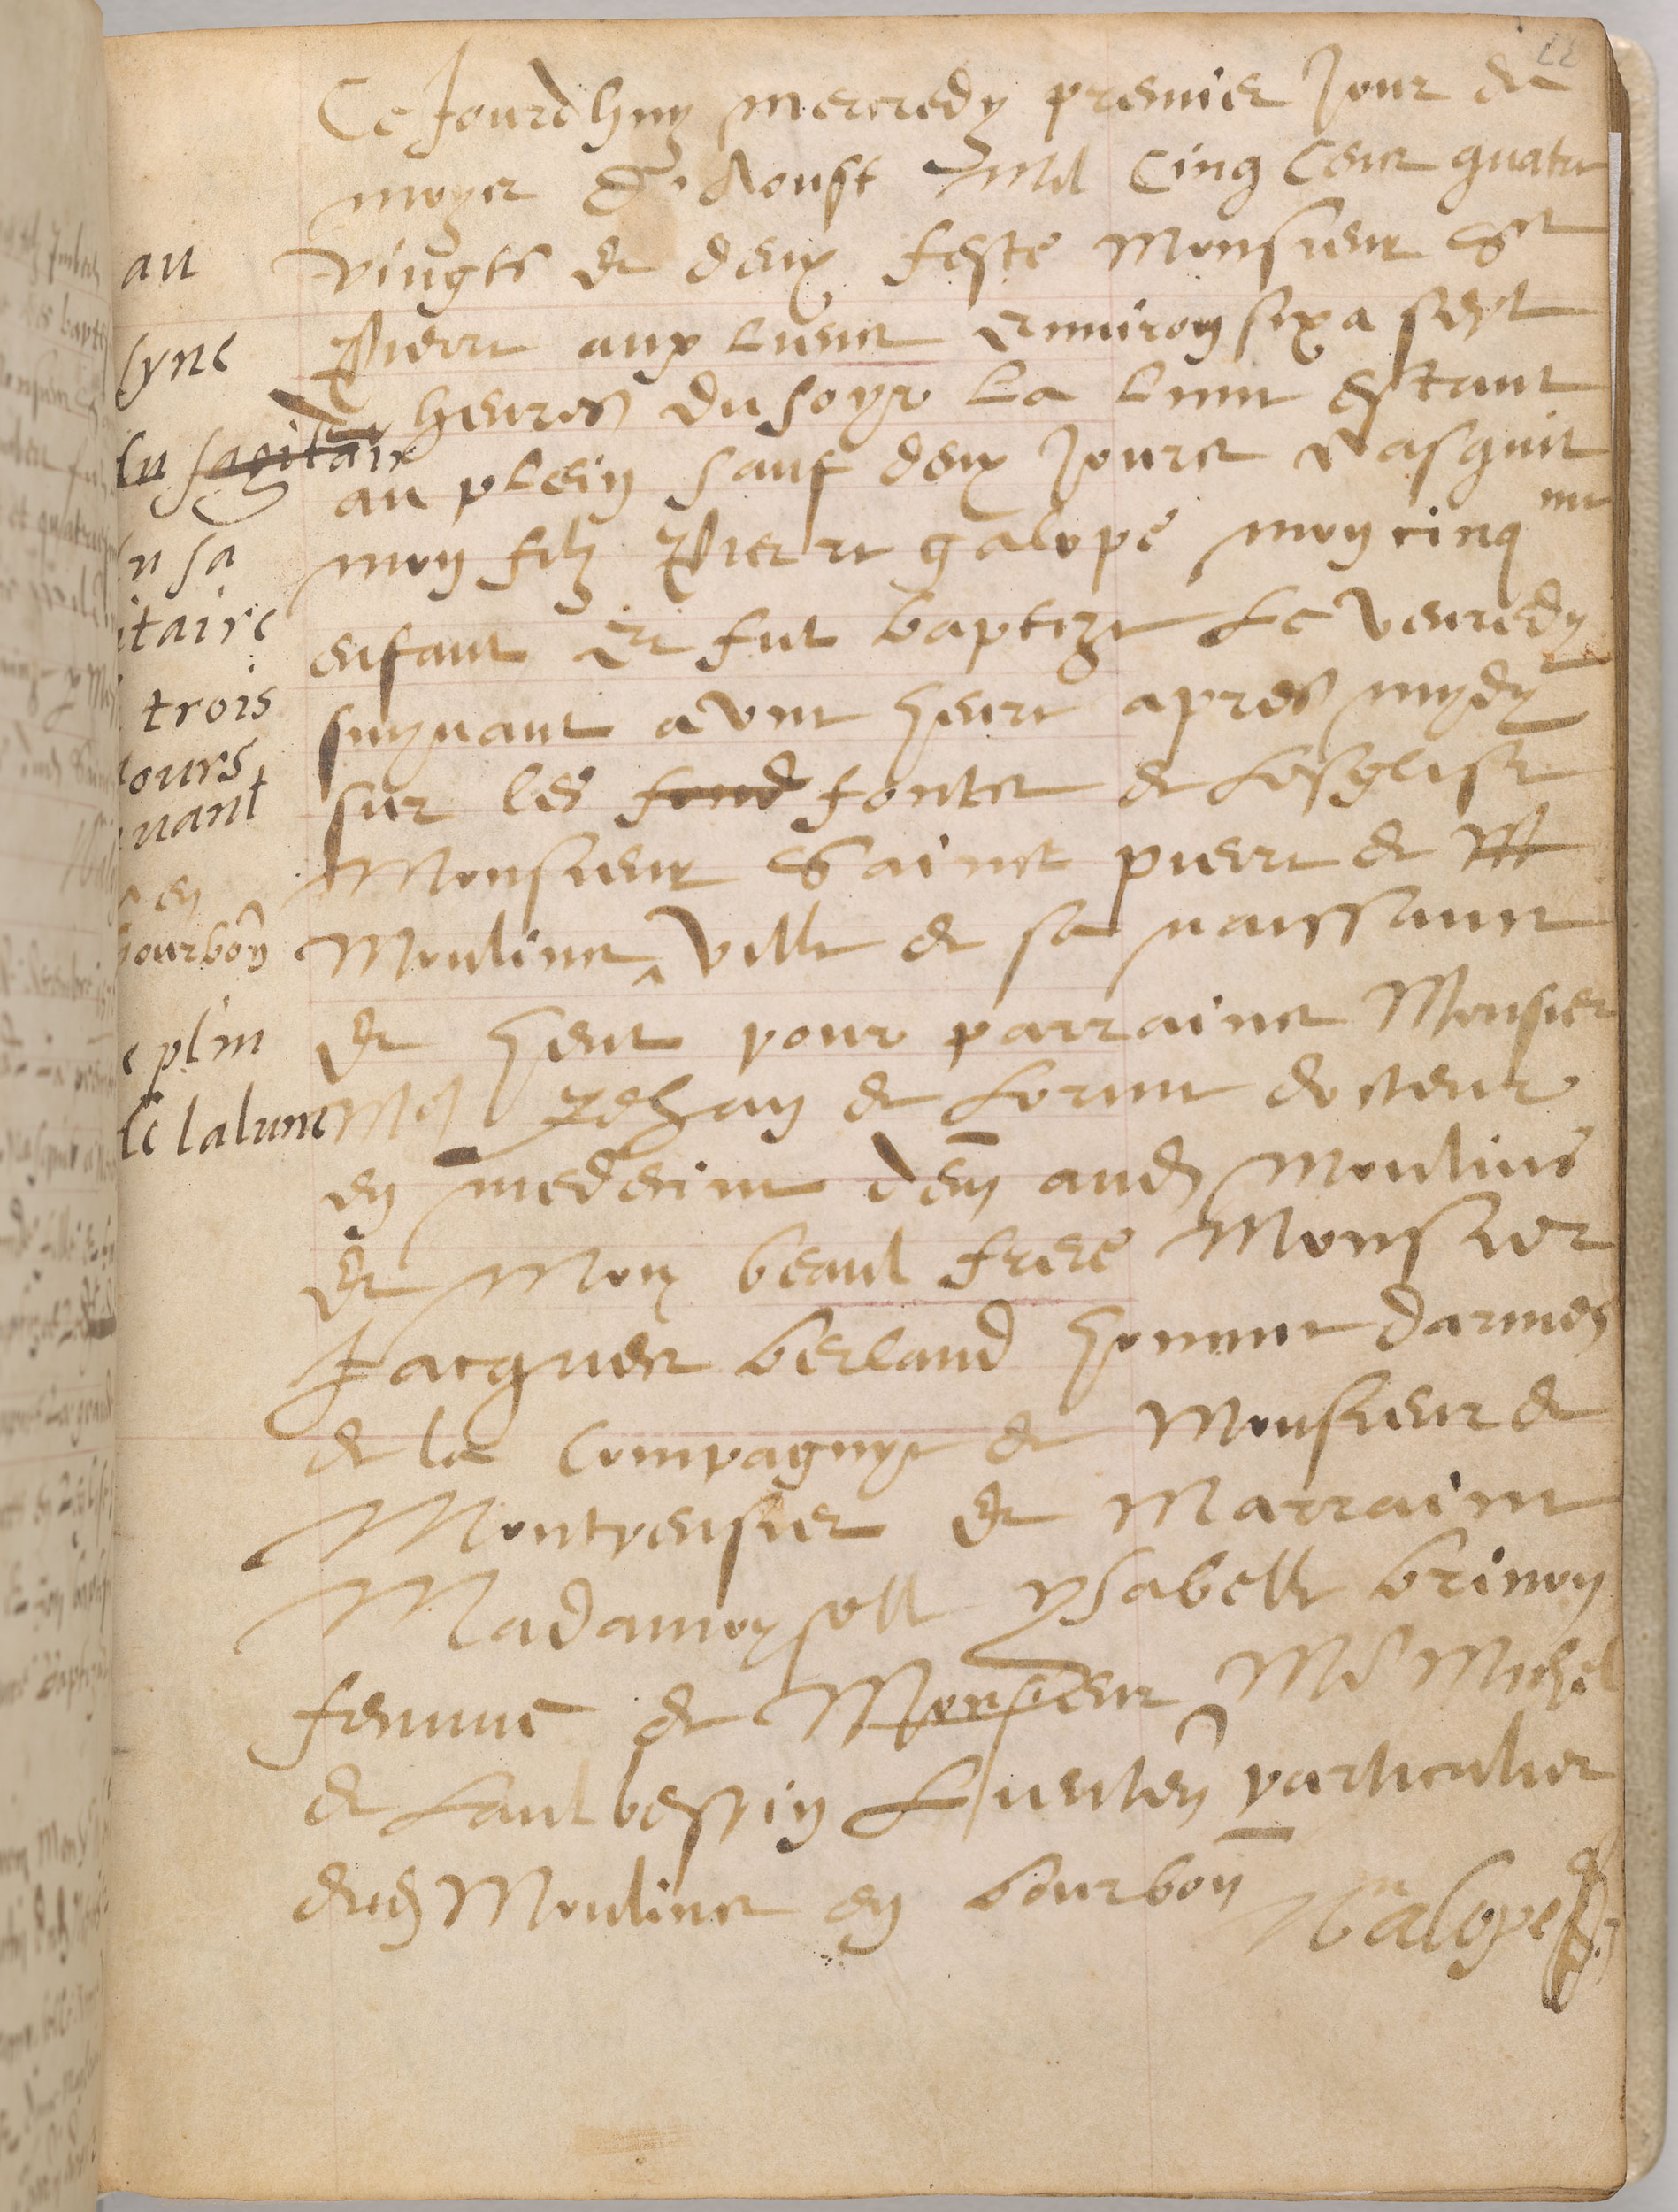 22
Ce Jourdhuy mercredy premier Jour de
moys d'Aoust Mil Cinq Cens quatre
vingts et deux feste Monsieur St
Pierre aux Liens environ six a sept
heures du soyr La Lune estant
au plein sauf deux Jours Nasquit
mon filz Pierre galope mon cinq me
enfant Et fut baptize Le Venredy
suyvant a une heure apres mydy
sur les fond fonts de Lesglise
Monsieur Sainct pierre de M
Moulins ^ Ville de sa naissance
et heut pour parrains Monsieur
Me Jehan de Lorme docteur
en medecine dem aud Moulins
et Mon beaul frere Monsieur
Jacques berland homme darmes
de la Compagnye de Monsieur de
Montpensier et Marraine
Madamoyselle ysabelle brinon
femme de Monsieur Me Michel
de Laulbespin Lieuten particulier
dud Moulins en bourbon Galope
au
syne
du sagitaire
du sa
itaire
trois
jours
vant
en
bourbon
e plin
de la lune